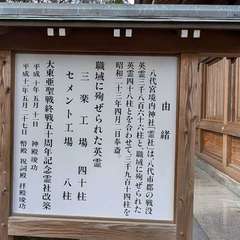 由緒
八代宮境内神社「霊社」は、八代市郡の戦没
英霊三千八百六十六柱と、職域に殉ぜられた
英霊四十八柱とを合わせて、三千九百十四柱を
昭和二十三年四月二日奉斎。
職域に殉ぜられた英霊
三楽工場 四十柱
セメント工場 八柱
大東亜聖戦終戦五十周年記念霊社改築
平成十年五月十一日 神殿竣功
平成十年五月二十七日 幣殿 祝詞殿 拝殿竣功